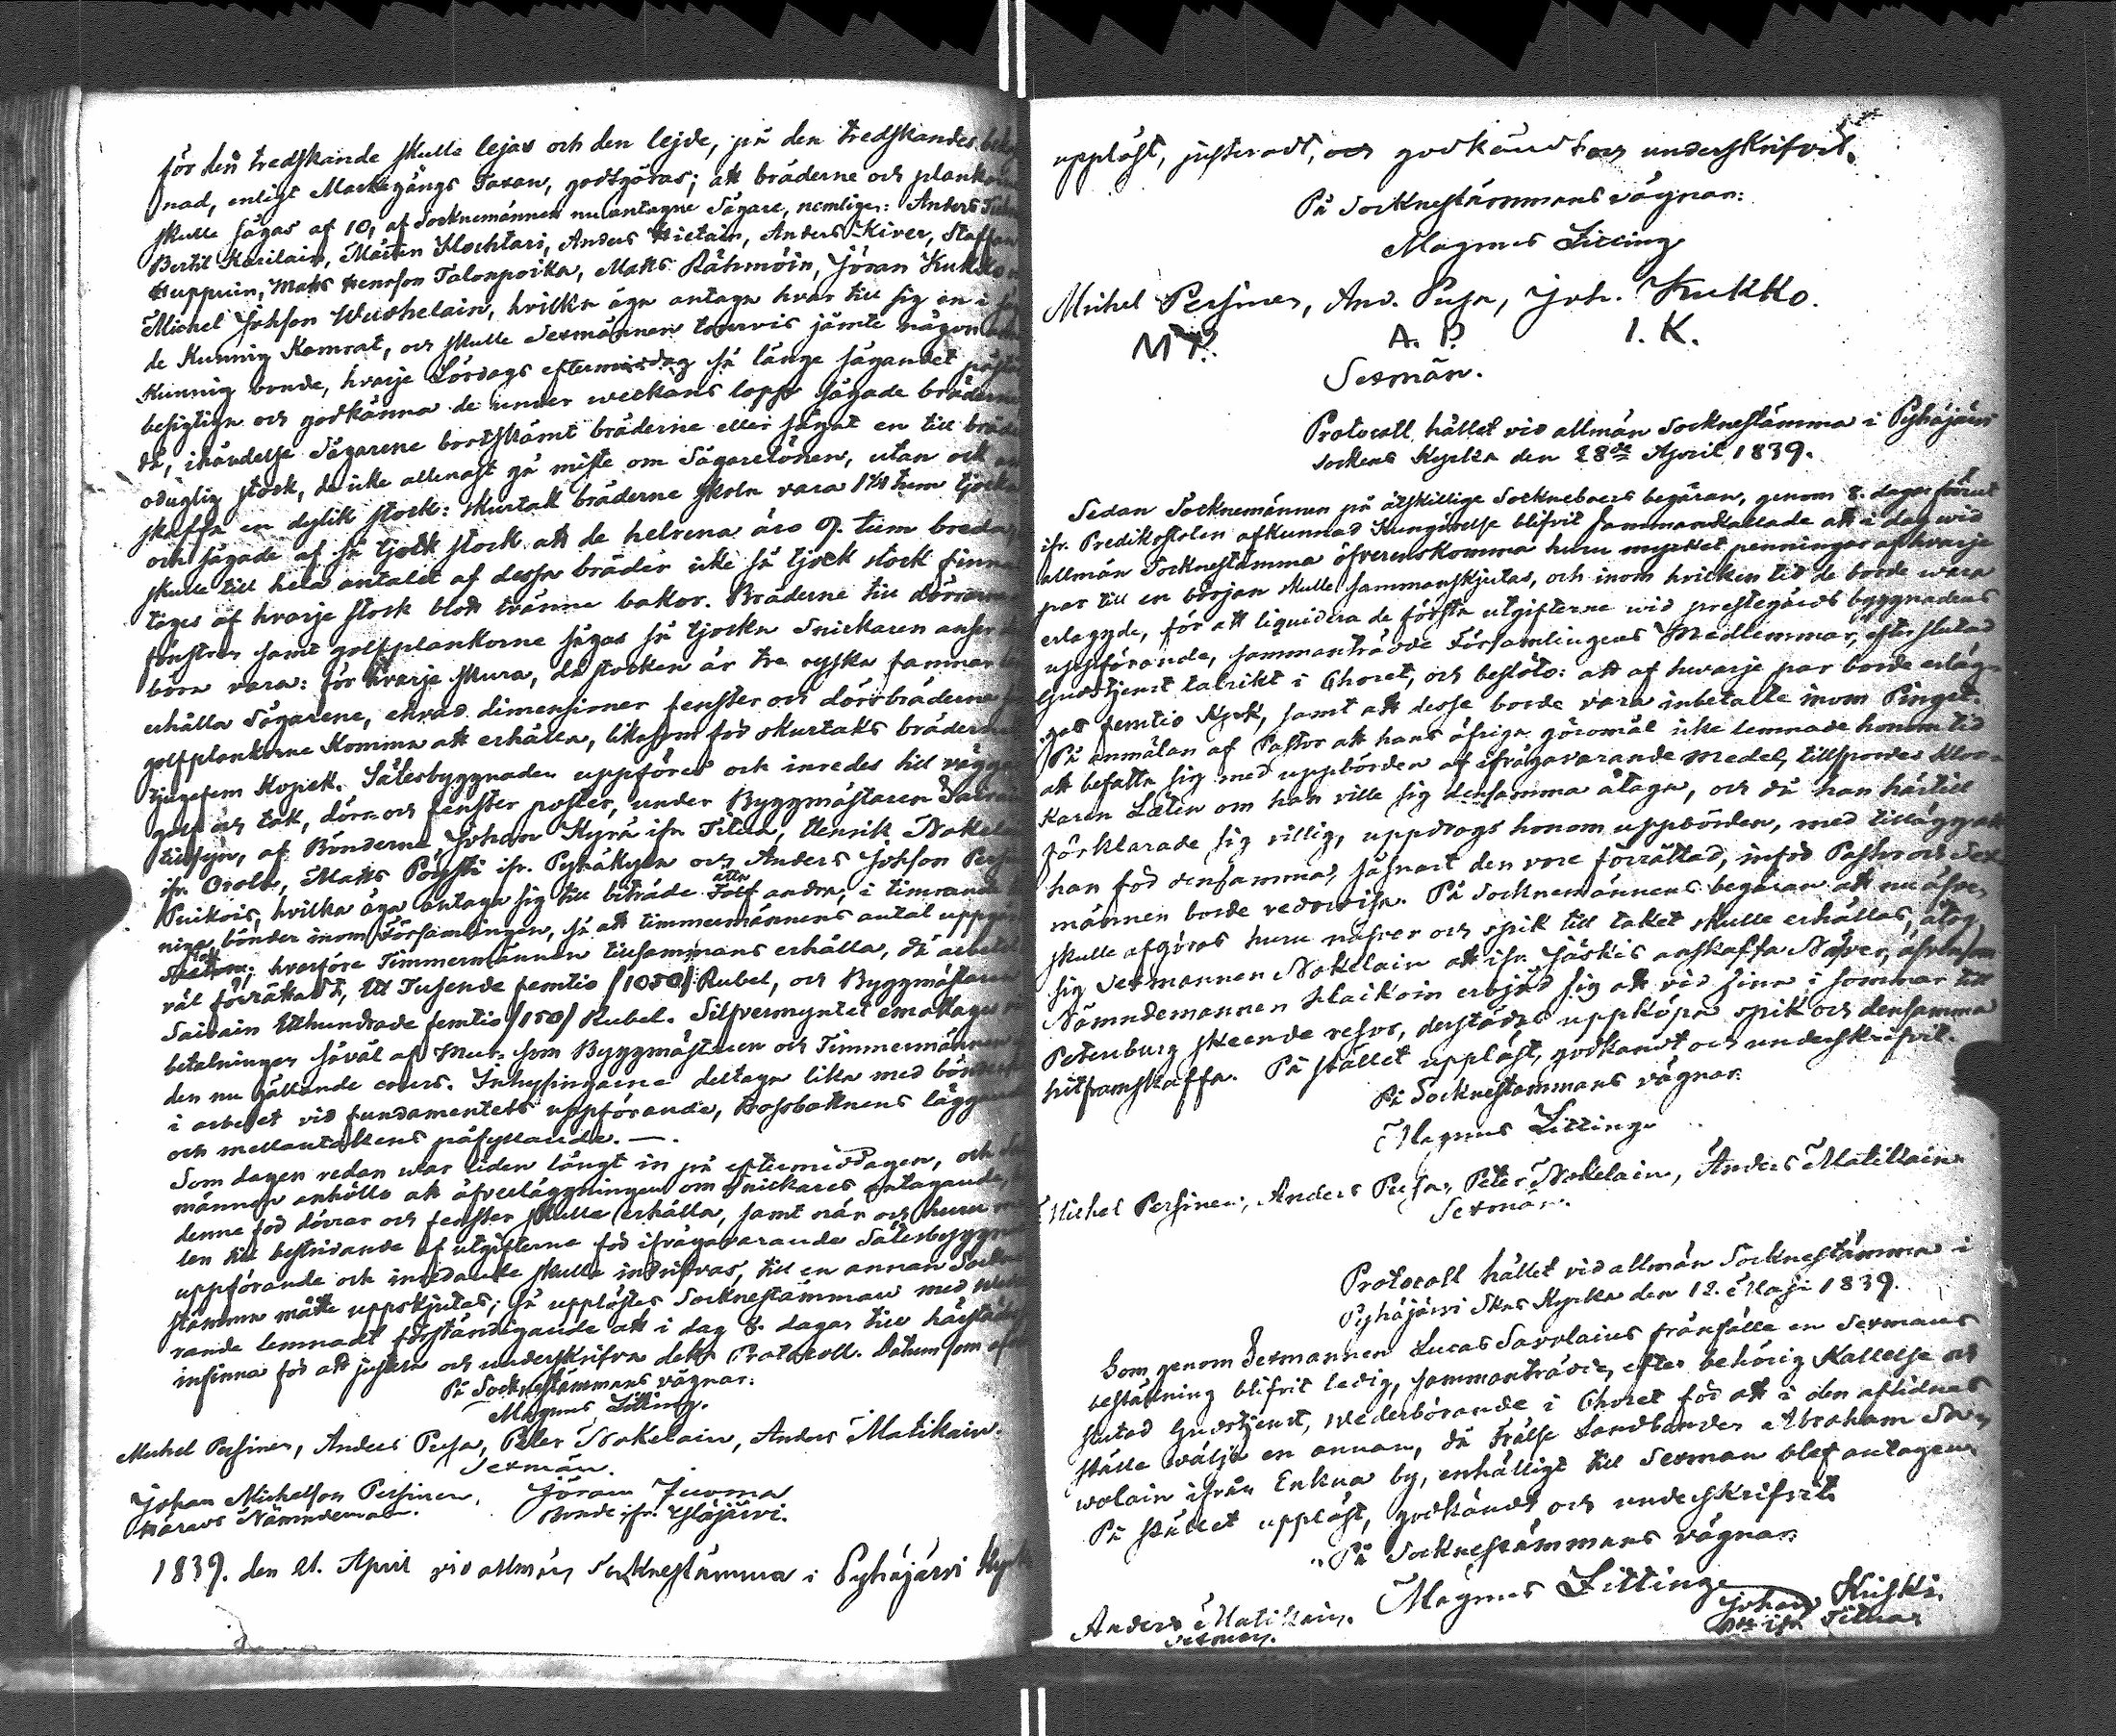 för den tredskande skulle lejas och den lejde, på den tredskandes
nad, enligt Markegångs Taxan, godtgöras; att bräderne och plankorne
skulle sågas af 10, af Socknemännen nu antagne Sågare, nemligen: Anders
Bertil Karilain, Mårten Klochtari, Anders Hietain, Anders Kiver, Staffan
Huppuin, Mats Henrsson Talonpoika, Matts Rähmöin, Jöran Kukko
Michel Johsson Wuohelain, hvilka äga antaga hvar till sig en i
de Kunnig Kamrat, och skulle Sexmännen tourvis jämte någon
Kunnig bonde, hvarje Lördags eftermiddag så länge sågandet
besigtiga och godkänna de under weckans lopp sågade bräderne
då, ihändelse Sågarene bortskämt bräderne eller sågat en till bräder
oduglig stock, de icke allenast gå miste om Sågarelönen, utan ock
skaffa en dylik stock: skurtak bräderne skola vara 1 1/4 tum tjocka
och sågade af så tjock stock att de helrena äro 9. tum breda,
skulle till hela antalet af dessa bräder icke så tjock stock finnas
tages af hvarje stock blott tvänne bakor. Bräderne till dörrarne
fönstren samt golfplankorne sågas så tjocka Snickaren anser
böra vara: för hvarje skura, då stocken är tre ryska famnar
erhålla Sågarene, ehvad dimensioner fenster och dörrbräderne
golfplankorne Komma att erhålla, likasom för skurtaks bräderne
tjugefem Kopek. Sätesbyggnaden uppföres och inredes till väggar
golf och tak, dörr- och fenster poster, under Byggmästaren Sairain
tillsyn, af Bönderne, Johan Kyrä ifr. Tiitua, Henrik Nokelain
ifr. Orola, Matts Pöysti ifr. Pyhäkylä och Anders Johsson
Peikois, hvilka äga antaga sig till biträde Tolf andra, i timrande
niga bönder inom Församlingen, så att timmermännens antal uppgår
hvarföre Timmermännen tillsammans erhålla, då arbetet
väl förrättadt, Ett Tusende femtio /1050/ Rubel, och Byggmästaren
Sairain Etthundrade femtio /150/ Rubel. Silfvermyntet emottages
betalningen såväl af Mur- som Byggmästaren och Timmermännen
den nu gällande cours. Inhysingarne deltaga lika med bönderne
i arbetet vid fundamentets uppförande, Trossbottnens läggande
och mellantakens påfyllande. —.
Som dagen redan war liden långt in på eftermiddagen, och
männen anhöllo att öfverläggningen om Snickares antagande,
denne för dörrar och fenster skulle erhålla, samt när och huru
len till bestridande af utgifterne för ifrågavarande Sätesbyggnads
uppförande och inredande skulle indrifvas, till en annan Sockne
stämma måtte uppskjutas; så upplöstes Socknestämman med
rande lemnadt förständigande att i dag 8. dagar till härstädes
infinna för att justera och underskrifva detta Protocoll. Datum som ofvan
På Socknestämmans vägnar:
Magnus Litting.
Michel Persinen, Anders Pusa, Peter Nokelain, Anders Matikain.
Sexmän.
Johan Michelson Persinen, Jöran Juoma
Härads Nämndeman. Bonde ifr. Yläjärvi.
1839. den 21. April vid allmän Socknestämma i Pyhäjärvi Kyrka
uppläst, justeradt, och godkändt och underskrifvit.
På Socknestämmans vägnar:
Magnus Litting
Michel Persinen, And. Pusa, Joh. Kukko.
M P. A. P. I. K.
Sexmän.
Protocoll, hållet vid allmän Socknestämma i Pyhäjärvi
Sockens Kyrka den 28de April 1839.
Sedan Socknemännen på åtskillige Sockneboers begäran, genom 8. dagar förut
ifr. Predikstolen afkunnad Kungörelse blifvit sammankallade att i dag wid
allmän Socknestämma öfverenskomma huru mycket penningar af hvarje
par till en början skulle sammanskjutas, och inom hvilken tid de borde wara
erlagde, för att liquidera de första utgifterne wid prestegårds byggnadens
uppförande, sammanträdde Församlingens Medlemmar, efter slutad
Gudstjenst talrikt i Choret, och beslöto: att af hwarje par borde erläg-
gas femtio Kopek, samt att desse borde vara inbetalte inom Pingst.
På anmälan af Pastor att hans öfriga göromål icke lemnade honom tid
att befatta sig med uppbörden af ifrågavarande medel, tillspordes Kloc-
karen Lætin om han ville sig densamma åtaga, och då han härtill
förklarade sig villig, uppdrogs honom uppbörden, med tillägg att
han för densamma, såsnart den vore förrättad, inför Pastor och Sex
männen borde redovisa. På Socknemännens begäran att nu äfven
skulle afgöras huru näfver och spik till taket skulle erhållas, åtog
sig Sexmannen Nokelain att ifr. Jääskis anskaffa Näfver, äfvensom
Nämndemannen Haikoin erbjöd sig att vid sina i sommar till
Petersburg skeende resor, derstädes uppköpa spik och densamma
hitframskaffa. På stället uppläst, godkändt och underskrifvit.
På Socknestämmans vägnar:
Magnus Litting
Michel Persinen, Anders Pusa, Peter Nokelain, Anders Matikain
Sexmän.
Protocoll hållet vid allmän Socknestämma i
Pyhäjärvi Skns Kyrka den 12. Maji 1839.
Som genom Sexmannen Lucas Savolains frånfälle en Sexmans
beställning blifvit ledig, sammanträdde, efter behörig Kallelse och
slutad Gudstjenst, wederbörande i Choret för att i den aflidnes
ställe wälja en annan, då Frälse Landbonden Abraham Sa-
wolain ifrån Enkua by, enhälligt till Sexman blef antagen.
På stället uppläst, godkändt och underskrifvit.
På Socknestämmans vägnar:
Magnus Litting
Anders Matikain. Johan Kuiski.
Sexman. ifr. Tiitua